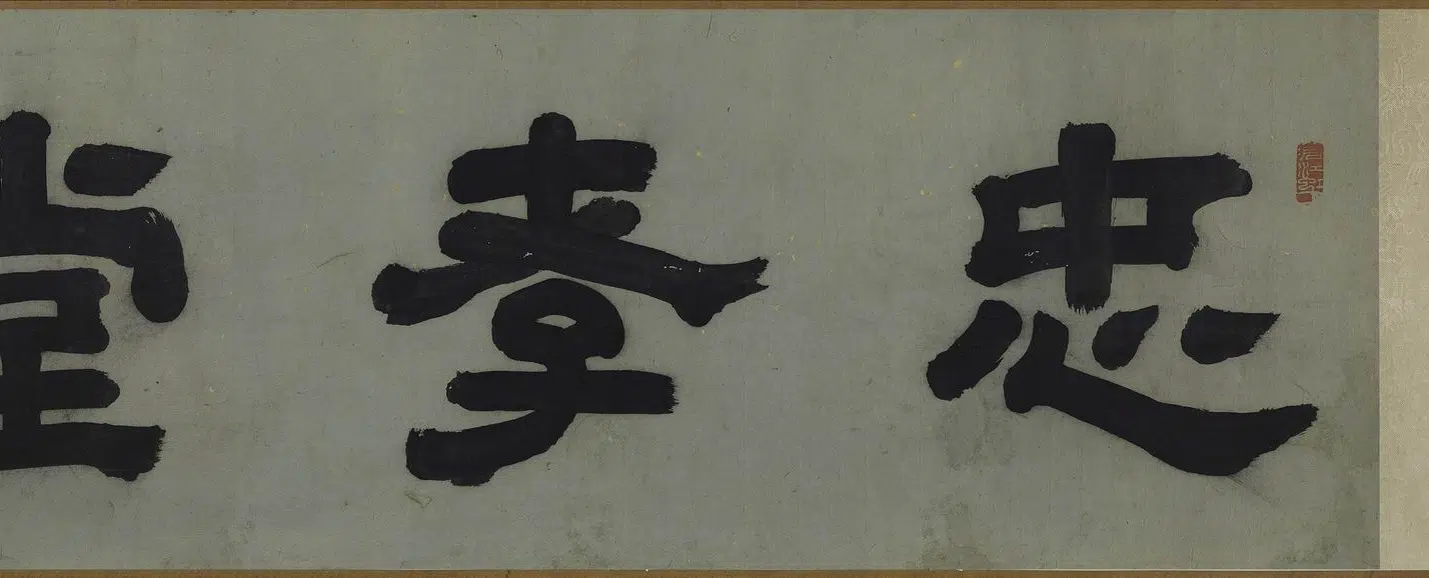 忠孝堂